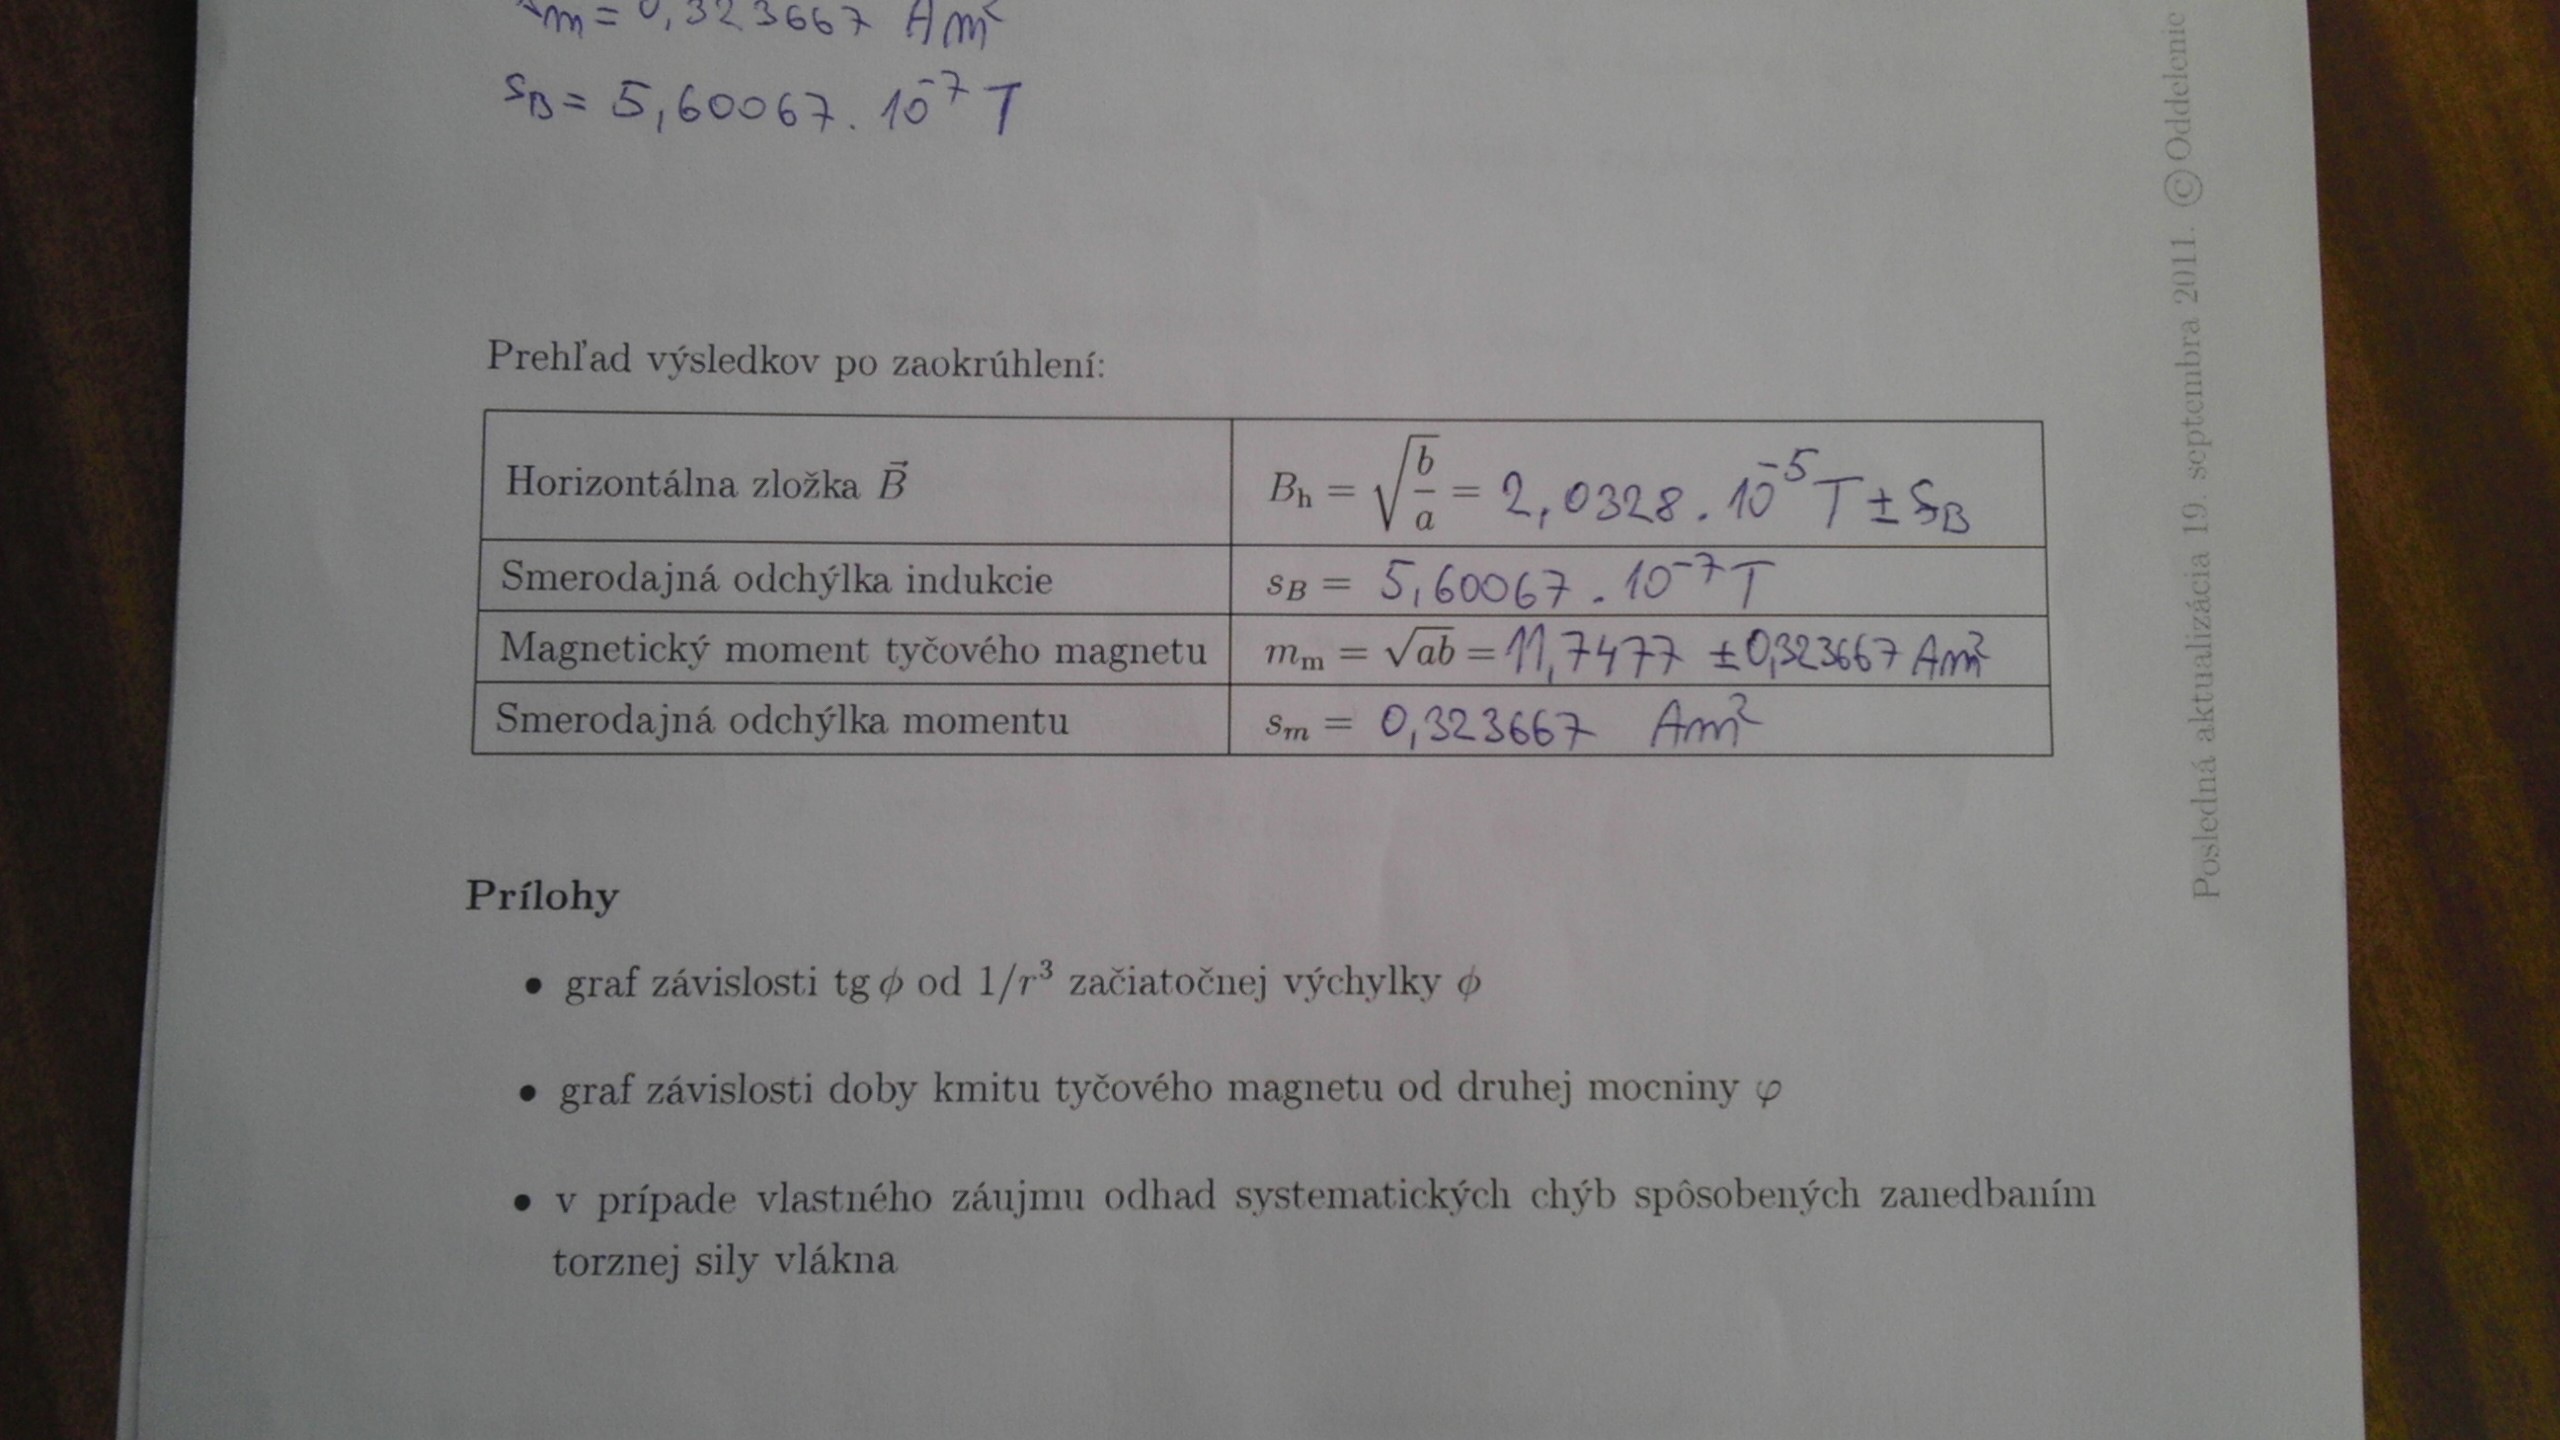 sm = 0,323667 Am²
sB = 5,60067 . 10⁻⁷ T
Prehľad výsledkov po zaokrúhlení:
Horizontálna zložka B⃗ Bh = √(b/a) = 2,0328 . 10⁻⁵ T ± sB
Smerodajná odchýlka indukcie sB = 5,60067 . 10⁻⁷ T
Magnetický moment tyčového magnetu mm = √ab = 11,7477 ± 0,323667 Am²
Smerodajná odchýlka momentu sm = 0,323667 Am²
Prílohy
• graf závislosti tg ϕ od 1/r³ začiatočnej výchylky ϕ
• graf závislosti doby kmitu tyčového magnetu od druhej mocniny φ
• v prípade vlastného záujmu odhad systematických chýb spôsobených zanedbaním
torznej sily vlákna
Posledná aktualizácia 19. septembra 2011. ©Oddelenie